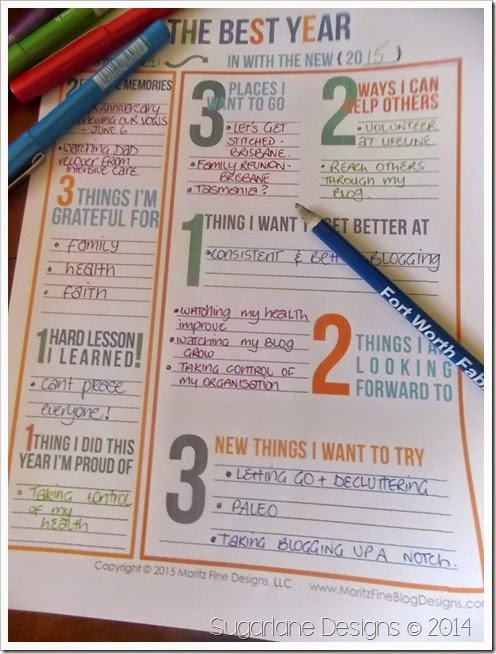 THE BEST YEAR
IN WITH THE NEW {2015}
MEMORIES
ANNIVERSARY
RENEWING OUR VOWS
- JUNE 6
• WATCHING DAD
RECOVER FROM
INTENSIVE CARE.
3 THINGS I'M
GRATEFUL FOR
• family
• health
• faith
1 HARD LESSON
I LEARNED!
• can't please
everyone!
1 THING I DID THIS
YEAR I'M PROUD OF
• Taking control
of my
health
3 PLACES I
WANT TO GO
• LET'S GET
STITCHED -
BRISBANE.
• FAMILY REUNION -
BRISBANE
• TASMANIA?
2 WAYS I CAN
HELP OTHERS
• VOLUNTEER
AT LIFELINE.
• REACH OTHERS
THROUGH MY
BLOG.
1 THING I WANT GET BETTER AT
• CONSISTENT & BLOGGING
• WATCHING my health
improve
• WATCHING MY BLOG
GROW
• TAKING CONTROL OF
MY ORGANISATION
2 THINGS I
LOOKING
FORWARD TO
3 NEW THINGS I WANT TO TRY
• LETTING GO + DECLUTTERING
• PALEO
• TAKING BLOGGING UP A NOTCH.
Fort Worth Fab
Copyright © 2015 Moritz Fine Designs, LLC
www.MoritzFineBlogDesigns.com
Sugarlane Designs © 2014